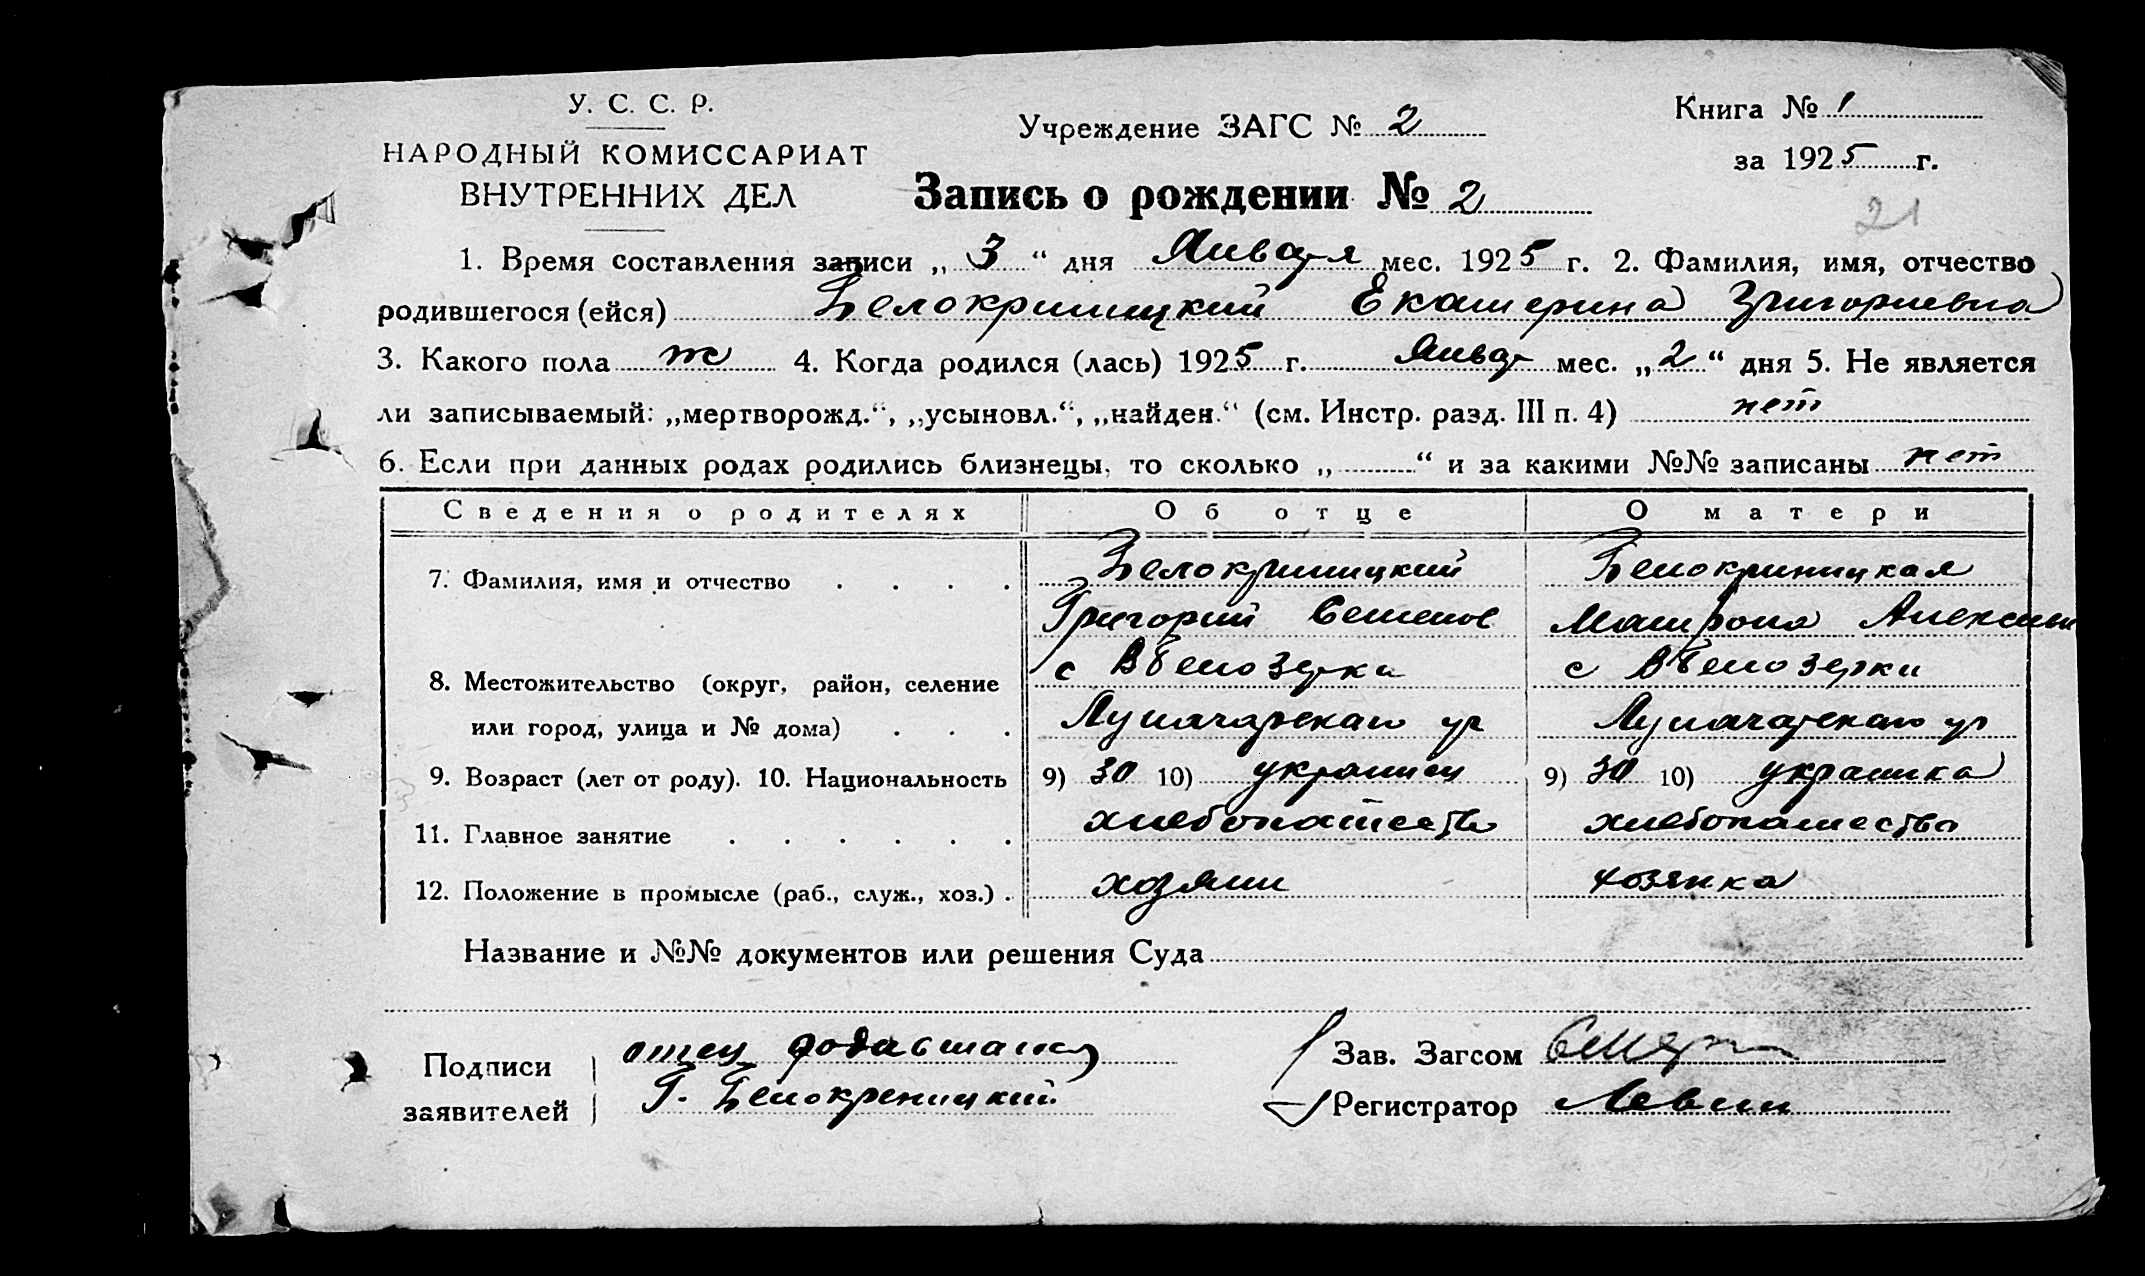 У. С. С. Р.
НАРОДНЫЙ КОМИССАРИАТ
ВНУТРЕННИХ ДЕЛ
Учреждение ЗАГС № 2
Запись о рождении № 2
Книга № 1
за 1925 г.
21
1. Время составления записи „ 3 “ дня Января мес. 1925 г. 2. Фамилия, имя, отчество
родившегося (ейся) Белокриницкий Екатерина Григориевна
3. Какого пола ж 4. Когда родился (лась) 1925 г. Январ мес. „ 2 “ дня 5. Не является
ли записываемый: „мертворожд.“, „усыновл.“, „найден.“ (см. Инстр. разд. III п. 4) нет
6. Если при данных родах родились близнецы, то сколько „ “ и за какими №№ записаны нет
Сведения о родителях Об отце О матери
7. Фамилия, имя и отчество Белокриницкий Белокриницкая
Григорий Семенов Матрона
с Белозерка с Белозерки
8. Местожительство (округ, район, селение
или город, улица и № дома)
9. Возраст (лет от роду). 10. Национальность 9) 30 10) украинец 9) 30 10) украинка
11. Главное занятие хлебопашество хлебопашество
12. Положение в промысле (раб., служ., хоз.) хозяин хозянка
Название и №№ документов или решения Суда
Подписи отец
заявителей Г. Белокреницкий
Зав. Загсом
Регистратор Левин